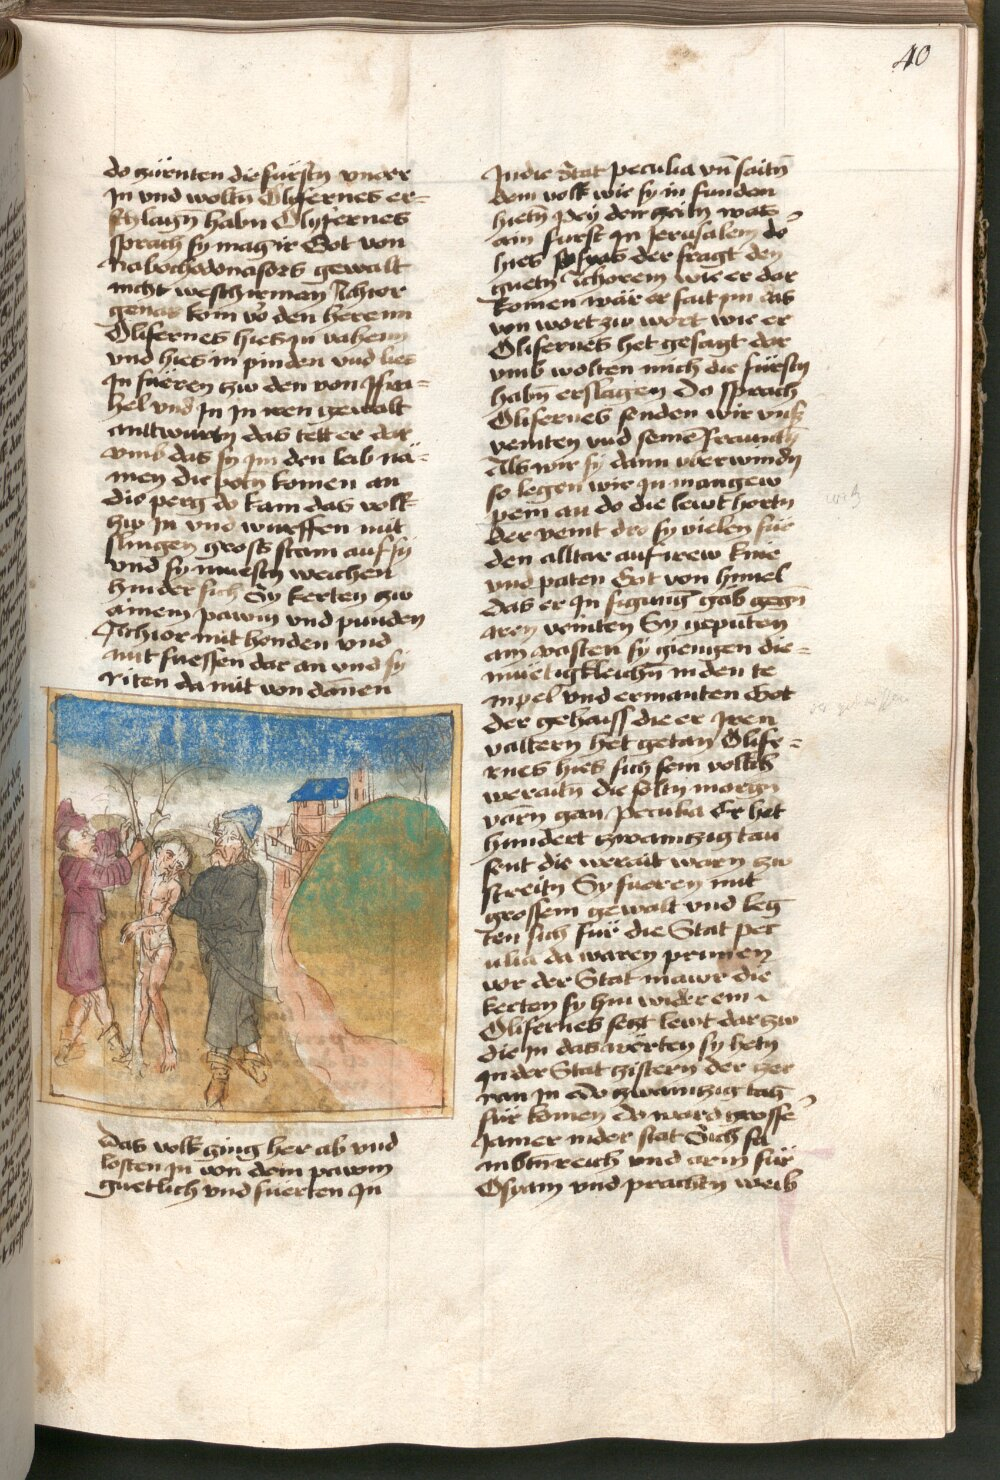 40
do zürnten die fürstn̄ vnder
In vnd woltn̄ Olyfernes er=
schlagn̄ habn̄ Olyfernes
sprach sy mag ir Got von
nabochodonasors gewalt
nicht weschirmen Achior
kom võ den herenn
Olifernes hies in vahenn
vnd hies in pinden vnd lies
In füeren zw den von Isra=
hel vnd In In iren gewalt
anttwurtn̄ das tett er dar
vmb das sy im den leib nä=
men die potn̄ komen an
die perg do kam das volk
zw In vnd wurffen mit
slingen gross stain auf sy
vnd sy muestn̄ weichen
hinder sich Sy kerten zw
ainem pawm vnd punden
Achior mit henden vnd
mit fuessen dar an vnd sy
riten da mit von dannen
das volk ging her ab vnd
losten In von dem pawm
guetlich vnd fuerten In
In die Stat peculia vn̄ saitn̄
dem volk wie sy in funden
hietn̄ pey den zeitn̄ was
ain fürst In Jerusalem do
hies der fragt den
guetn̄ Achorem wie er dar
komen wär er sait im das
von wort zw wort wie er
Olifernes het gesagt dar
vmb wolten mich die fürstn̄
habn̄ erslagen Do sprach
Olifernes senden wir vnsz
veinten vnd seinē freundn̄
Als wir sy dann vberwindn̄
so legen wir In mangew
pein an do die lewt hortn̄
der veint dro sy vielen für
den alltar auf irew knie
vnd paten Got von himel
das er In sigung gab gegn̄
iren veinten Sy geputen
ain vasten sy giengen die=
müetigkleichn̄ in den te
mpel vnd ermanten Got
der gehaiss die er Iren
vättern het getan Olife=
rnes hies sich sein volkh
weraitn̄ die soltn̄ morgn̄
varn̄ gan peculia Er het
hundert zwaintzig tau
sent die werait warn zw
streitn̄ Sy fueren mit
grossem gewalt vnd leg
ten sich für die Stat pec
ulia da waren prunen
vor der Stat mawr die
kerten sy hin wider ein
Olifernes setzt lewt dar zw
die In das wërten sy hetn̄
In der Stat zistern der zer
ran In Do zwaintzig tag
für komen do ward grosse
Jamer in der stat Sich sa
mbtn̄ reich vnd arm für
Osyam vnd prachtn̄ weib